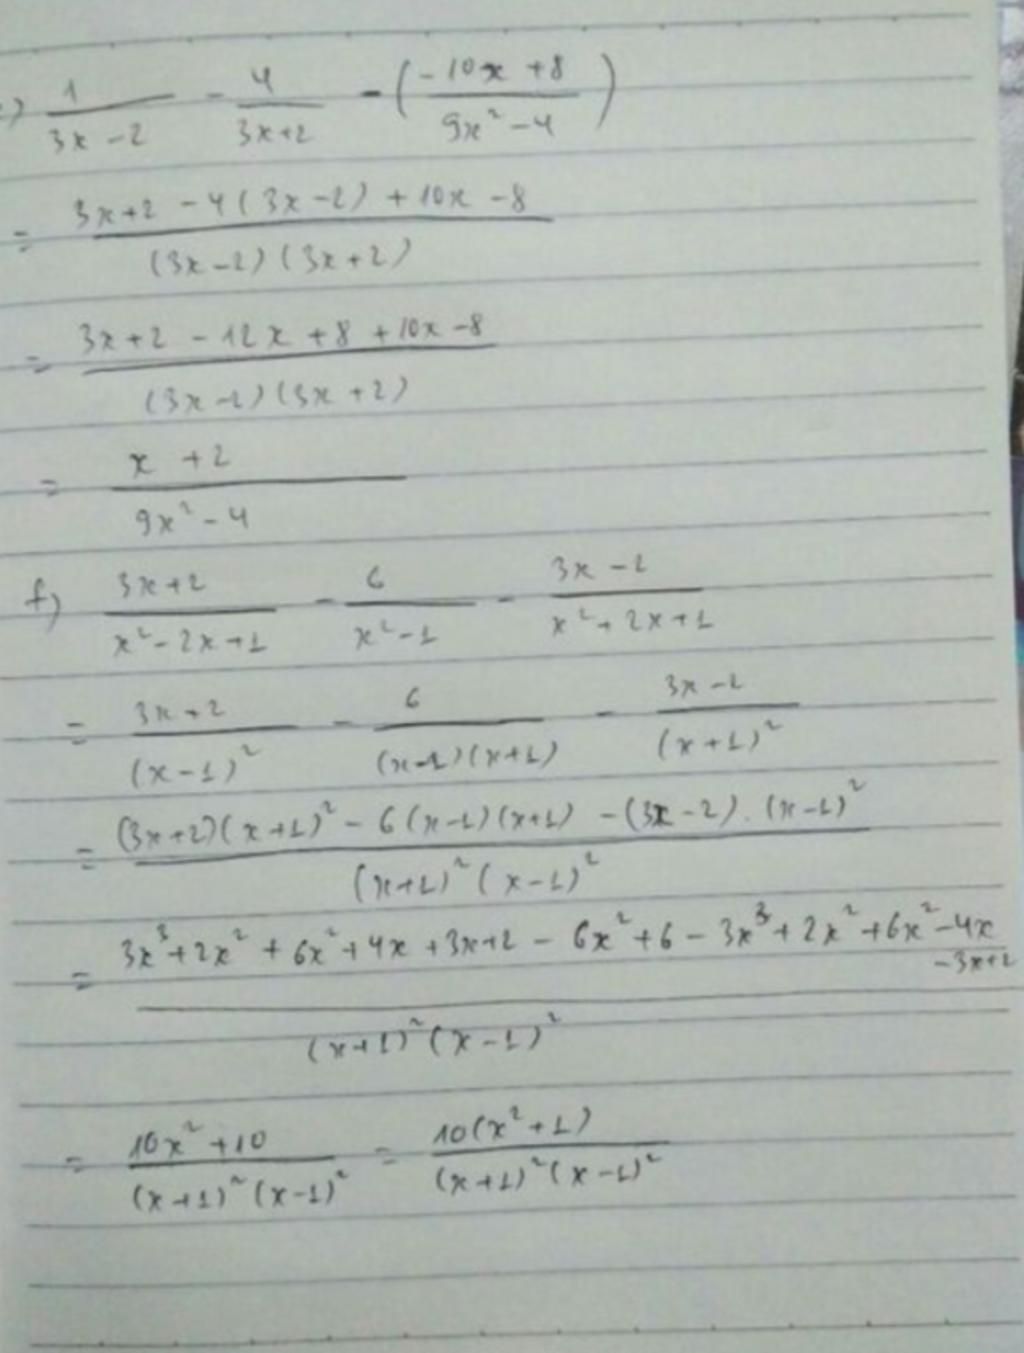 ) 1/(3x-2) - 4/(3x+2) - ((-10x+8)/(9x²-4))
= (3x+2 - 4(3x-2) + 10x - 8)/((3x-2)(3x+2))
= (3x+2 - 12x + 8 + 10x - 8)/((3x-2)(3x+2))
= (x + 2)/(9x² - 4)
f) (3x+2)/(x²-2x+1) - 6/(x²-1) - (3x-2)/(x²+2x+1)
= (3x+2)/(x-1)² - 6/((x-1)(x+1)) - (3x-2)/(x+1)²
= ((3x+2)(x+1)² - 6(x-1)(x+1) - (3x-2).(x-1)²)/((x+1)²(x-1)²)
= (3x³+2x²+6x²+4x+3x+2 - 6x²+6 - 3x³+2x²+6x²-4x-3x+2)/((x+1)²(x-1)²)
= (10x²+10)/((x+1)²(x-1)²) = 10(x²+1)/((x+1)²(x-1)²)